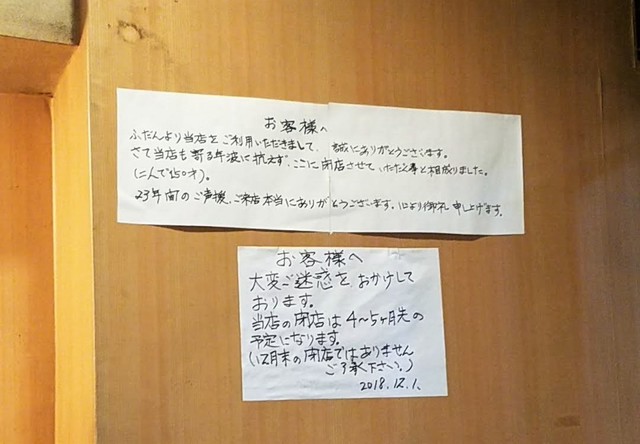 お客様へ
ふだんより当店をご利用いただきまして、誠にありがとうございます。
さて当店も寄る年波に抗えず、ここに閉店させていただく事と相成りました。
(二人で150才)。
23年間のご声援、ご来店本当にありがとうございます。心より御礼申し上げます。
お客様へ
大変ご迷惑をおかけして
おります。
当店の閉店は4〜5ヶ月先の
予定になります。
(12月末の閉店ではありません
ご了承下さい。)
2018.12.1.